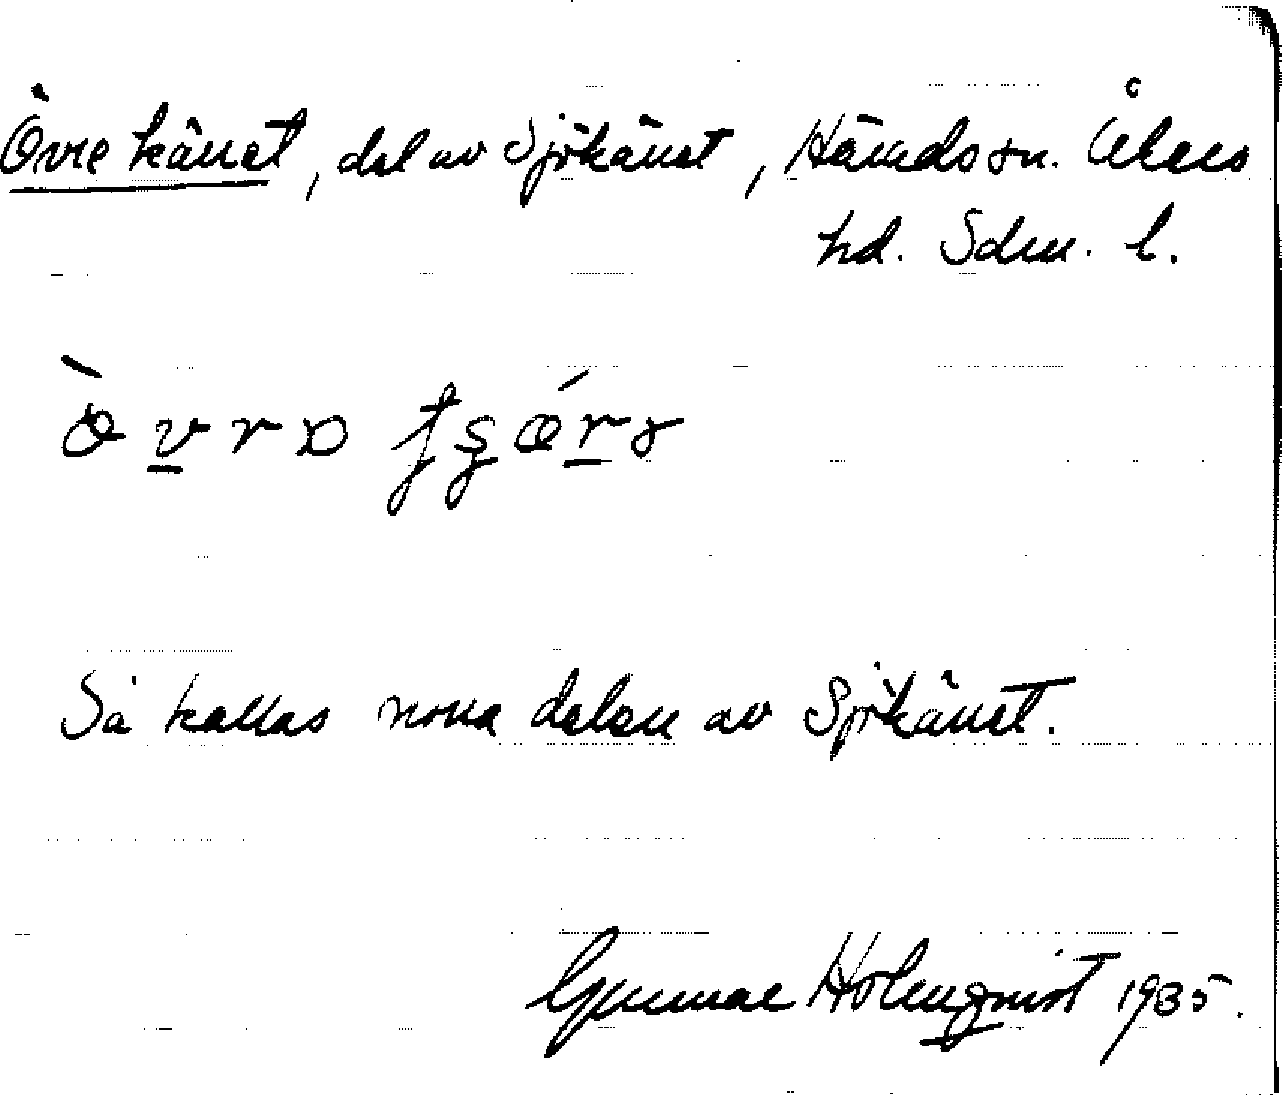 Övre kärret, del av Sjökärret, Härads sn. Åkers
hd. Sdm. l.
Så kallas norra delen av Sjökärret.
Gunnar Holmqvist 1935.